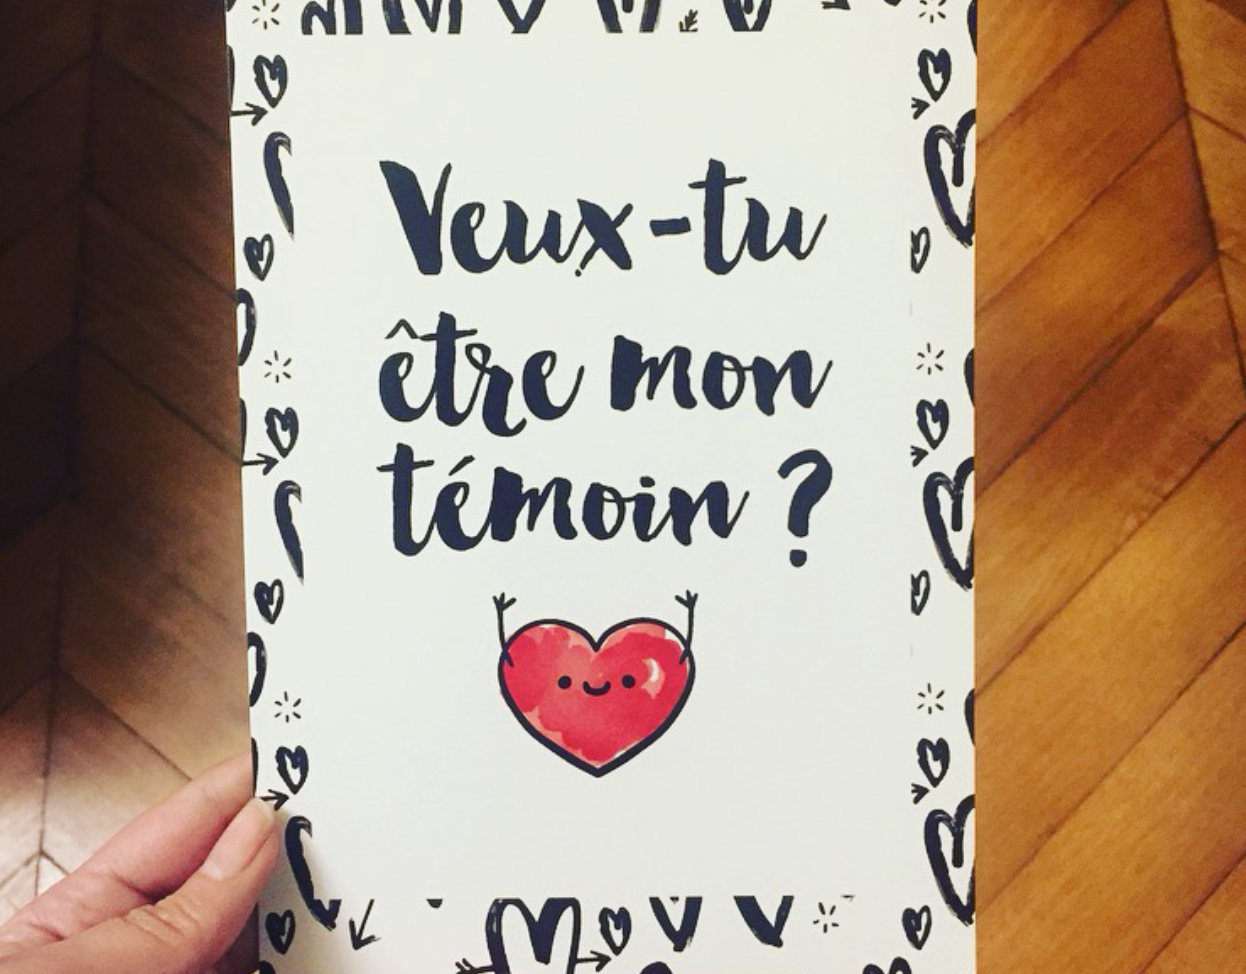 Veux-tu
être mon
témoin ?